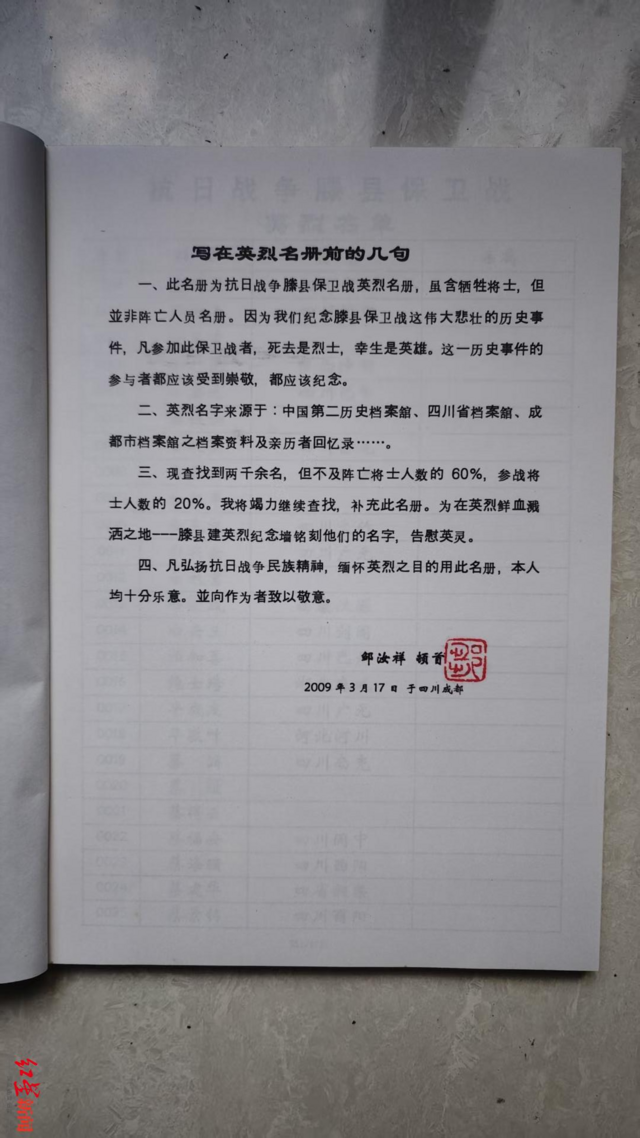 写在英烈名册前的几句
一、此名册为抗日战争滕县保卫战英烈名册，虽含牺牲将士，但
並非阵亡人员名册。因为我们纪念滕县保卫战这伟大悲壮的历史事
件，凡参加此保卫战者，死去是烈士，幸生是英雄。这一历史事件的
参与者都应该受到崇敬，都应该纪念。
二、英烈名字来源于：中国第二历史档案舘、四川省档案舘、成
都市档案舘之档案资料及亲历者回忆录……。
三、现查找到两千余名，但不及阵亡将士人数的 60%，参战将
士人数的 20%。我将竭力继续查找，补充此名册。为在英烈鲜血溅
洒之地---滕县建英烈纪念墙铭刻他们的名字，告慰英灵。
四、凡弘扬抗日战争民族精神，缅怀英烈之目的用此名册，本人
均十分乐意。並向作为者致以敬意。
邹汝祥 顿首
2009 年 3 月 17 日 于四川成都
红星新闻